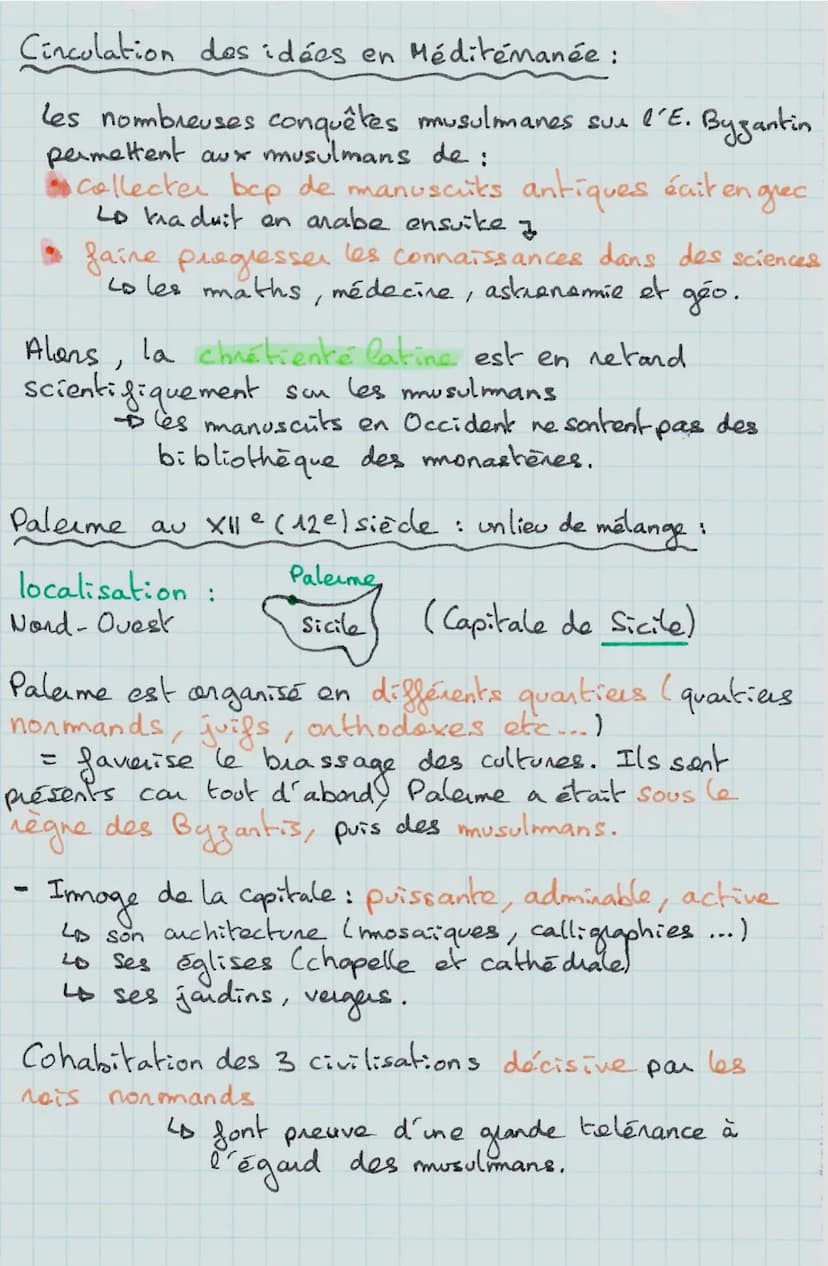 Circulation des idées en Méditérranée :
Les nombreuses conquêtes musulmanes sur l'E. Byzantin
permettent aux musulmans de :
• collecter bcp de manuscrits antiques écrit en grec
↳ traduit en arabe ensuite ↴
• faire progresser les connaissances dans des sciences
↳ les maths, médecine, astronomie et géo.
Alors, la chrétienté latine est en retard
scientifiquement sur les musulmans
→ les manuscrits en Occident ne sortent pas des
bibliothèque des monastères.
Palerme au XIIe (12e) siècle : un lieu de mélange :
localisation :
Nord-Ouest
Palerme
Sicile
(Capitale de Sicile)
Palerme est organisé en différents quartiers (quartiers
normands, juifs, orthodoxes etc...)
= favorise le brassage des cultures. Ils sont
présents car tout d'abord, Palerme a était sous le
règne des Byzantis, puis des musulmans.
- Image de la capitale : puissante, admirable, active
↳ son architecture (mosaïques, calligraphies ...)
↳ Ses églises (chapelle et cathédrale)
↳ ses jardins, vergers.
Cohabitation des 3 civilisations décisive par les
rois normands
↳ font preuve d'une grande tolérance à
l'égard des musulmans.